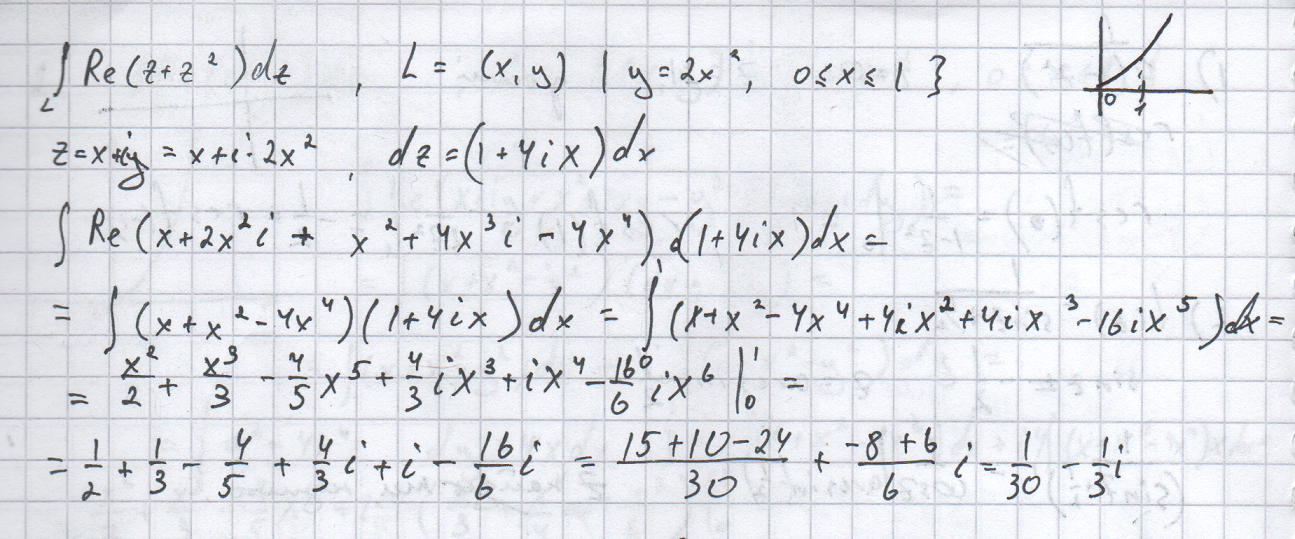 ∫_L Re(z+z²)dz , L = (x, y) | y = 2x², 0 ≤ x ≤ 1 }
0 1
z = x+iy = x+i·2x² , dz = (1+4ix)dx
∫ Re(x+2x²i + x²+4x³i − 4x⁴) d(1+4ix)dx =
= ∫(x+x²−4x⁴)(1+4ix)dx = ∫₀¹(x+x²−4x⁴+4ix²+4ix³−16ix⁵)dx =
= x²/2 + x³/3 − 4/5 x⁵ + 4/3 ix³ + ix⁴ − 16/6 ix⁶ |₀¹ =
= 1/2 + 1/3 − 4/5 + 4/3 i + i − 16/6 i = (15+10−24)/30 + (−8+6)/6 i = 1/30 − 1/3 i